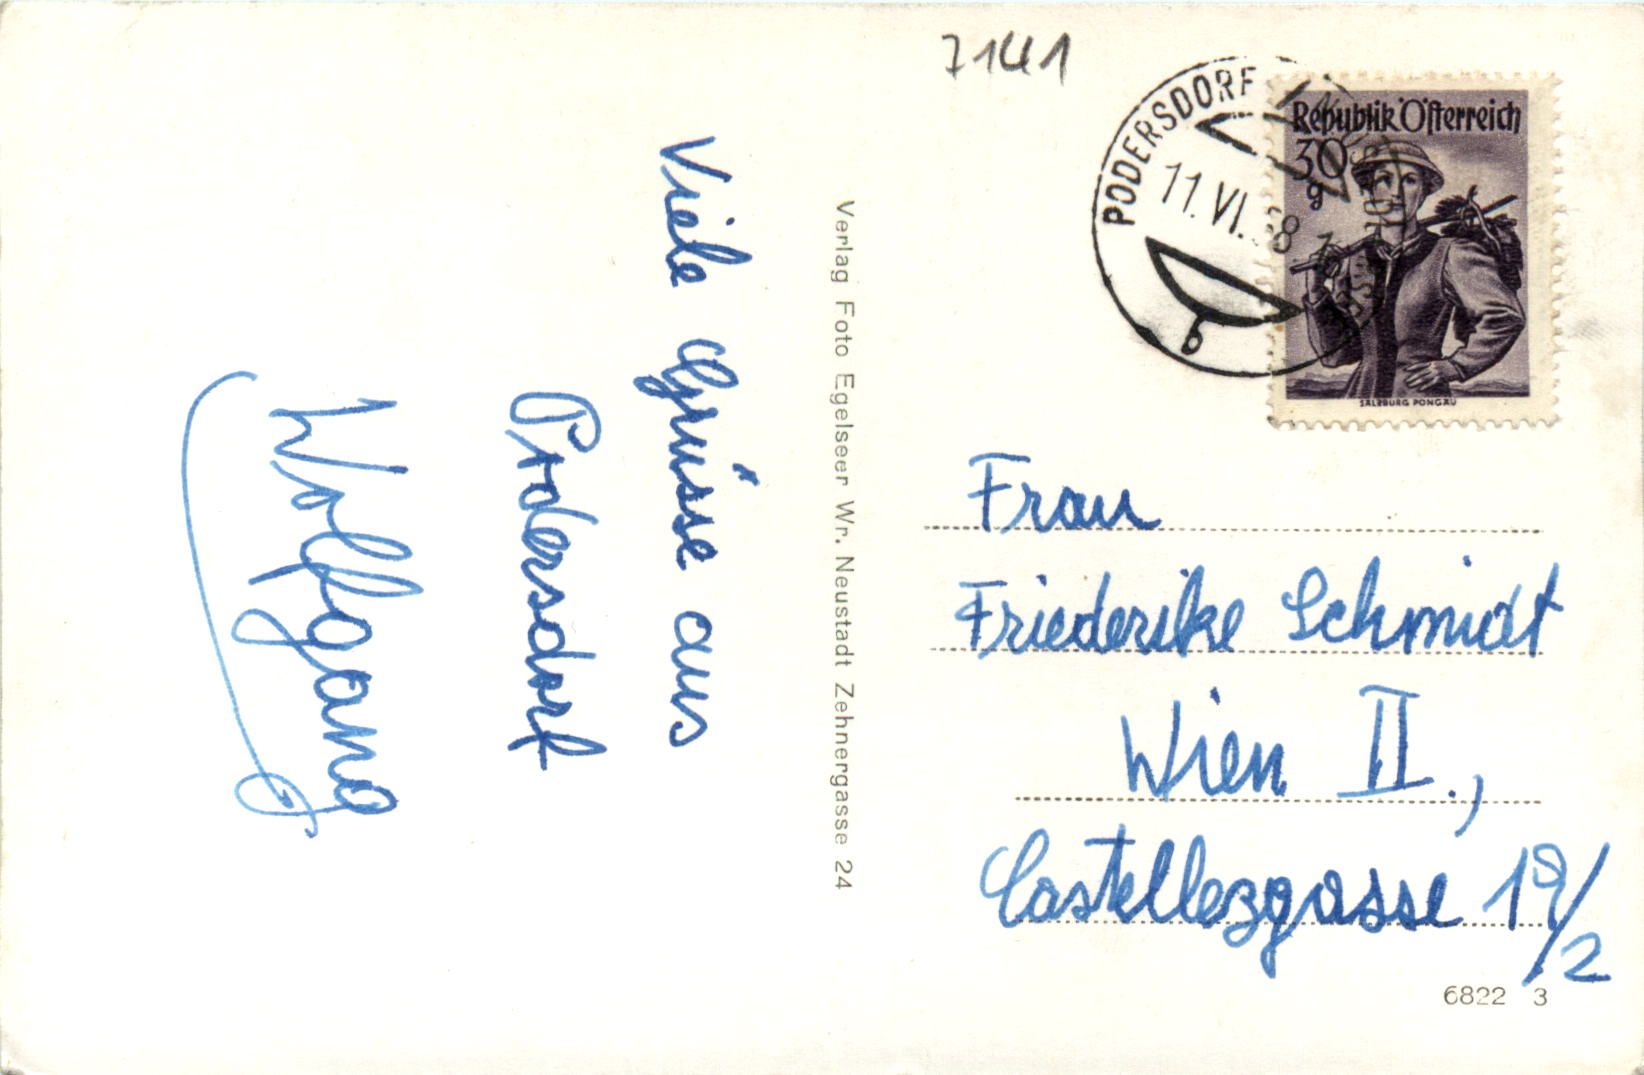 7141
PODERSDORF
11.VI. 8
Republik Österreich
30
g
SALZBURG PONGAU
b
Viele Grüsse aus
Podersdorf
Wolfgang
Verlag Foto Egelseer Wr. Neustadt Zehnergasse 24
Frau
Friederike Schmidt
Wien II.,
Castellezgasse 19/2
6822 3